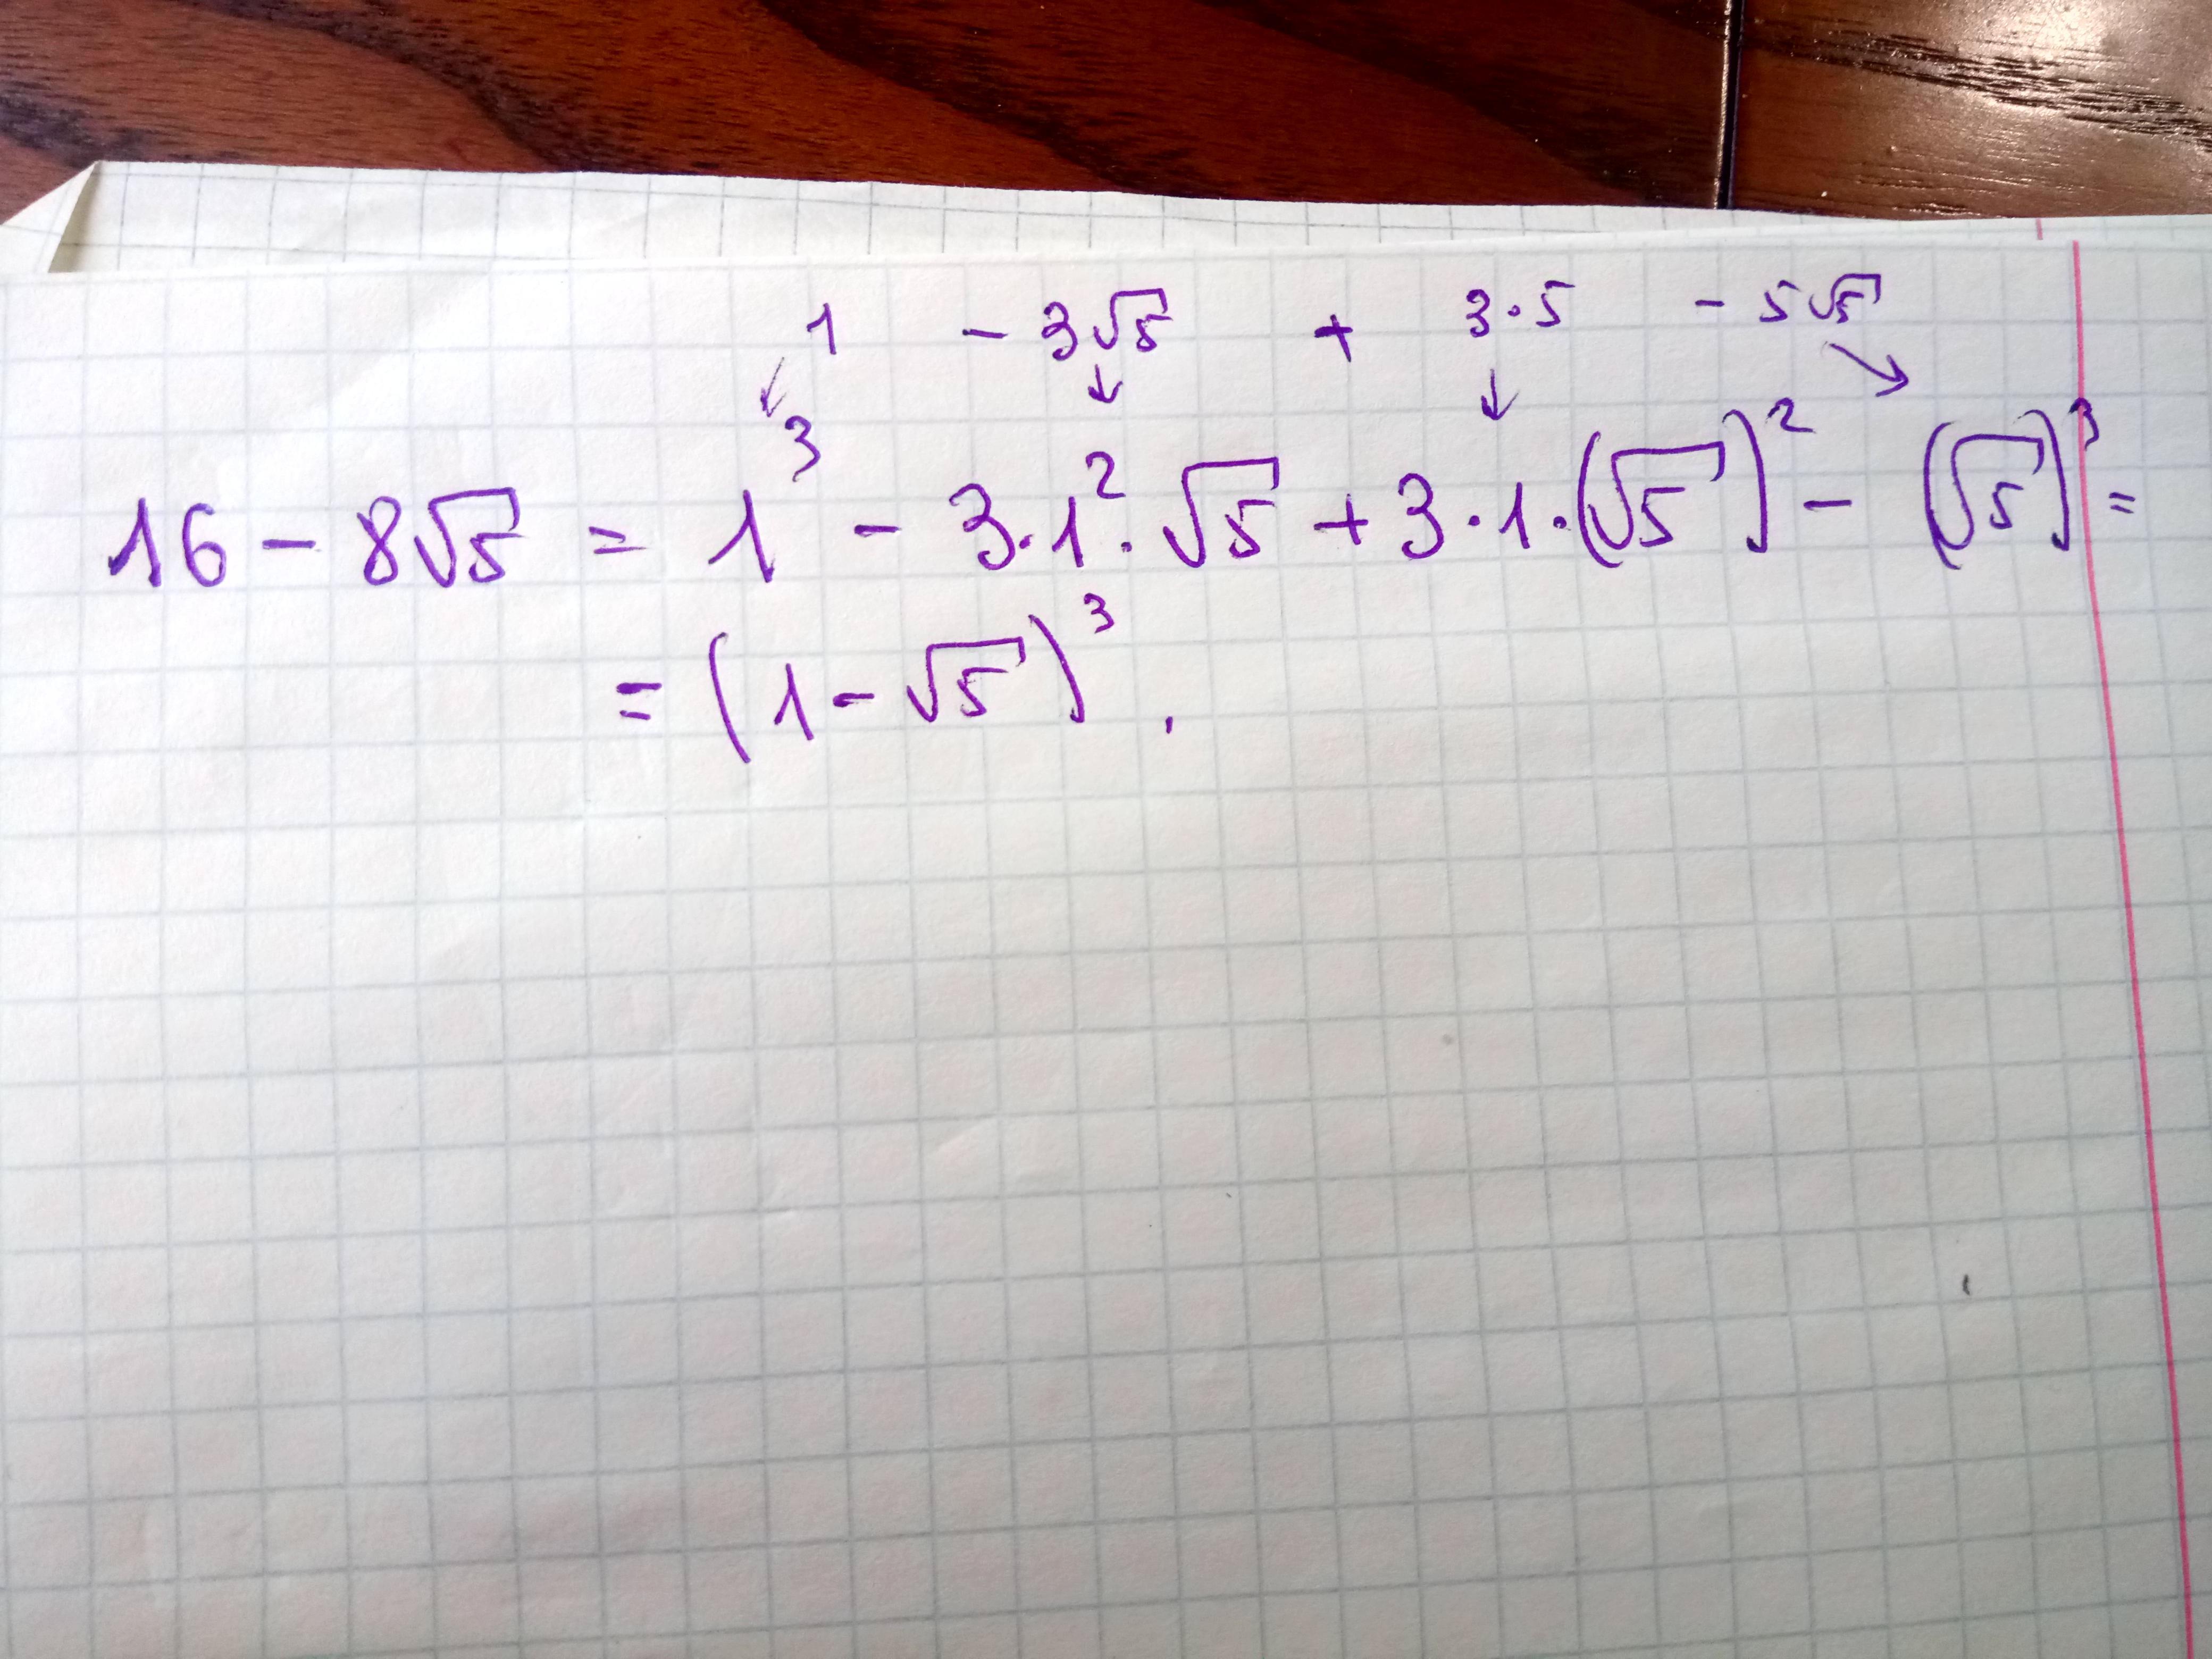 1 - 3√5 + 3·5 - 5√5
↙ ↓ ↓ ↘
16 - 8√5 = 1³ - 3·1²·√5 + 3·1·(√5)² - (√5)³ =
= (1 - √5)³.